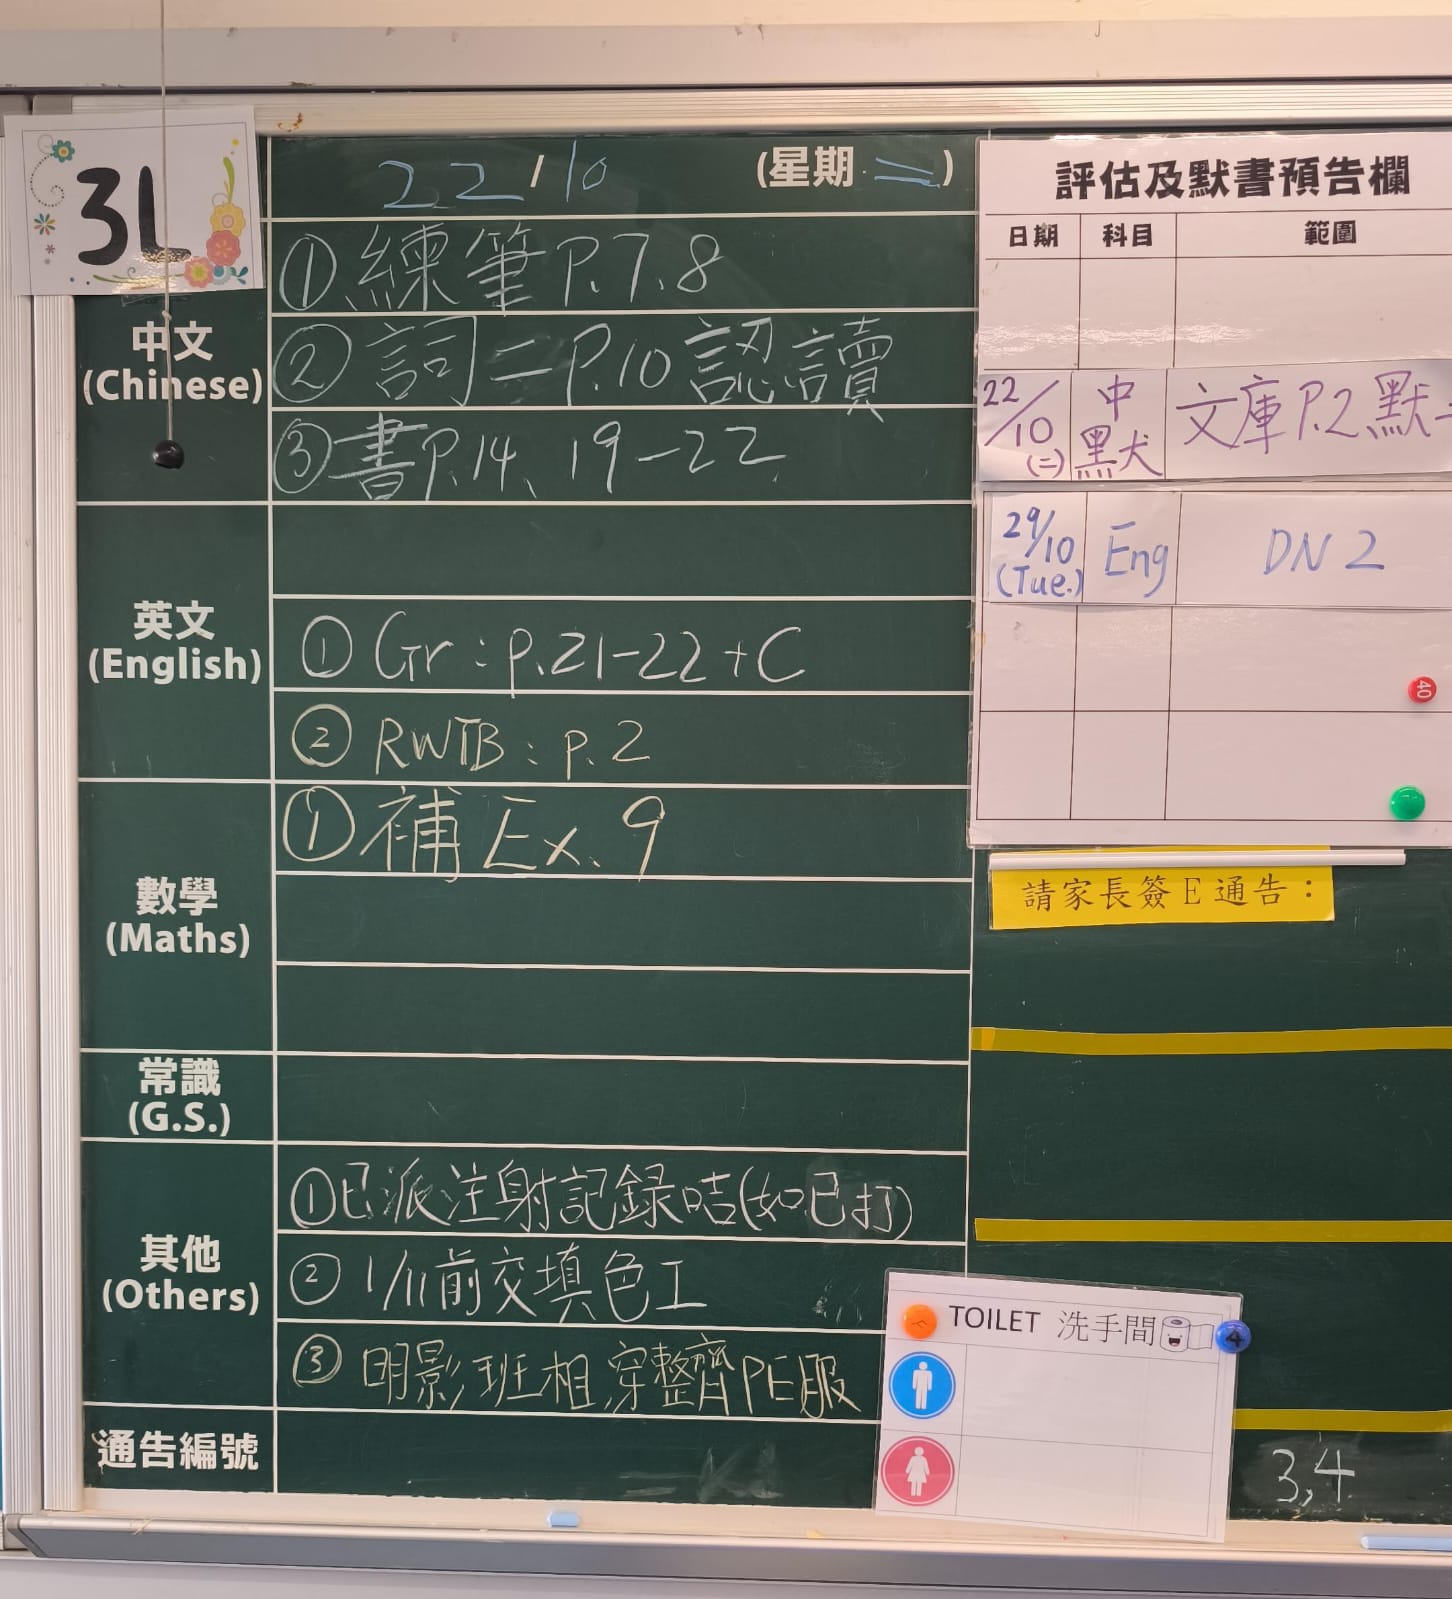 3L
22/10 (星期二)
中文
(Chinese)
①練筆P.7.8
②詞二P.10認讀
③書P.14、19-22
英文
(English)
① Gr: p.21-22+C
② RWTB: p.2
數學
(Maths)
①補Ex.9
常識
(G.S.)
其他
(Others)
①已派注射記錄咭(如已打)
②1/11前交填色工
③明影班相穿整齊PE服
通告編號
評估及默書預告欄
日期 科目 範圍
22/10(二) 中默 文庫P.2默
29/10(Tue.) Eng DN 2
40
請家長簽E通告：
TOILET 洗手間
4
3,4